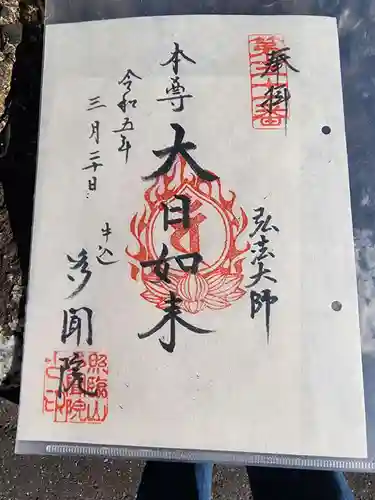 奉拝
弘法大師
本尊
大日如来
令和五年
三月二十日
牛込
多聞院
照臨山